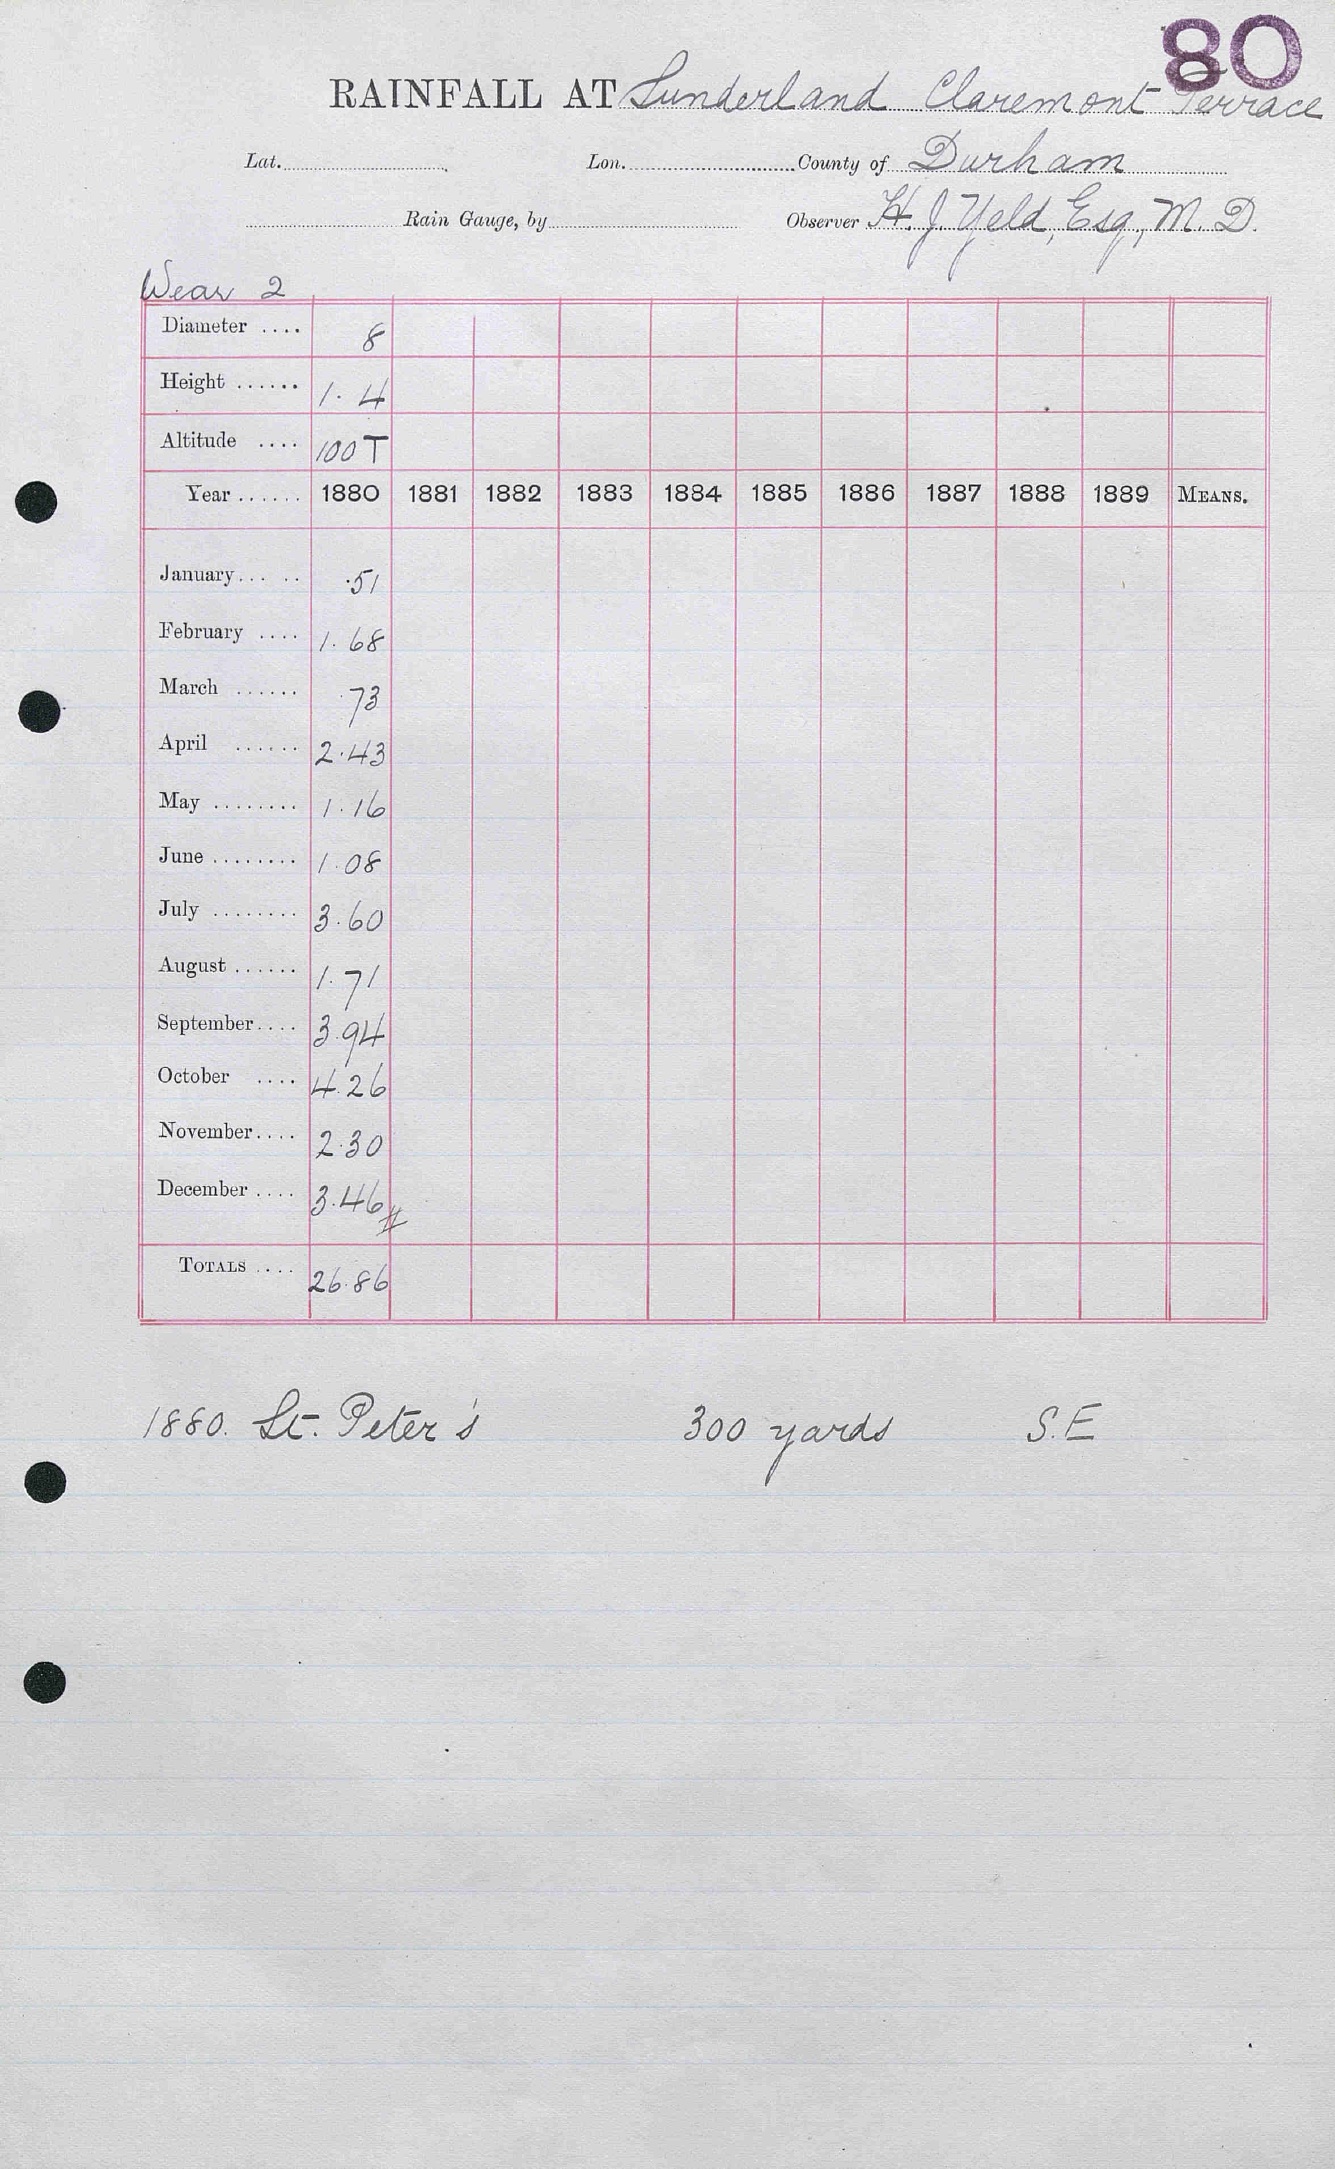 80
RAINFALL AT Sunderland Claremont Terrace
Lat. Lon. County of Durham
Rain Gauge, by Observer H. J. Yeld, Esq., M. D.
Wear 2
Diameter .... 8
Height ...... 1. 4
Altitude .... 100 T
Year ...... 1880 1881 1882 1883 1884 1885 1886 1887 1888 1889 MEANS.
January... .. .51
February .... 1.68
March ...... .73
April ...... 2.43
May ........ 1.16
June ........ 1.08
July ........ 3.60
August ...... 1.71
September.... 3.94
October .... 4.26
November.... 2.30
December .... 3.46
TOTALS .... 26.86
1880. St. Peter's 300 yards S.E